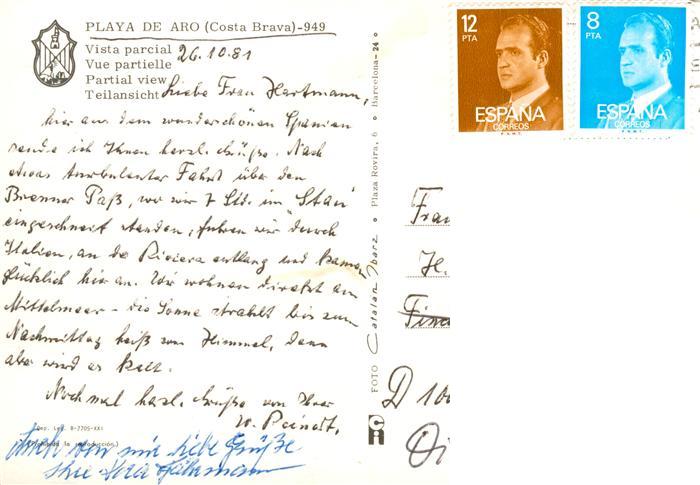 PLAYA DE ARO (Costa Brava)-949
Vista parcial
Vue partielle
Partial view
Teilansicht
26.10.81
Liebe Frau Hartmann,
hier aus dem wunderschönen Spanien
sende ich Ihnen herzl. Grüße. Nach
etwas turbulenter Fahrt über den
Brenner Paß, wo wir 7 Std. im Stau
eingeschneit standen, fuhren wir durch
Italien, an de Riviera entlang und kamen
glücklich hier an. Wir wohnen direkt am
Mittelmeer - die Sonne strahlt bis zum
Nachmittag heiß vom Himmel, dann
aber wird es kalt.
Nochmal herzl. Grüße von Ihrer
Dep. Leg. B-7705-XXI
(Prohibida la reproducción)
Auch von mir liebe Grüße
Ihre
FOTO Catalan Ibarz • Plaza Rovira, 6 • Barcelona-24
12
PTA
ESPAÑA
CORREOS
F.N.M.T.
8
PTA
ESPAÑA
CORREOS
F.N.M.T.
Frau
H.
D 100